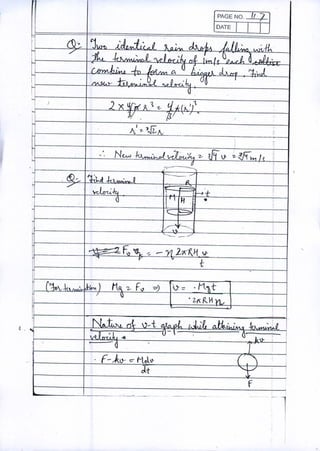 PAGE NO. 117
DATE
Q:- Two identical rain drops falling with
the terminal velocity of 1m/s each
combine to form a bigger drop. Find
new terminal velocity.
2 × 4/3 π r³ = 4/3 π (r')³
r' = ³√2 r
∴ New terminal velocity = ³√4 v = ³√4 m/s
Q:- Find terminal
velocity
R
M H
t
v
= - η 2πRH v
t
(For terminal) Mg = Fv ⇒ v = Mgt
2πRHη
Nature of v-t graph while attaining terminal
velocity •
kv
F - kv = Mdv
dt
F